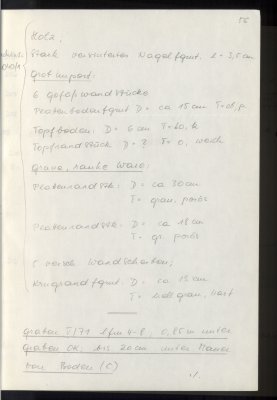 56
Holz;
Stark versinterter Nagelfgmt. L = 3,5 cm
Grobimport:
6 Gefäßwandstücke
Plattenbodenfgmt D = ca 15 cm T=
Topfboden: D = 6 cm T=
Topfrandstück D = ? T= o, weich
Graue, rauhe Ware:
Plattenrandstk: D = ca 30 cm
T= grau, porös
Plattenrandstk: D = ca 18 cm
T= gr. porös
5 versch Wandscherben;
Krugrandfgmt. D = ca 13 cm
T= hellgrau, hart
Graben I/71 lfm 4-8; 0,85 m unter
Graben OK, bis 20 cm unter Mauer
Boden (C)
./.